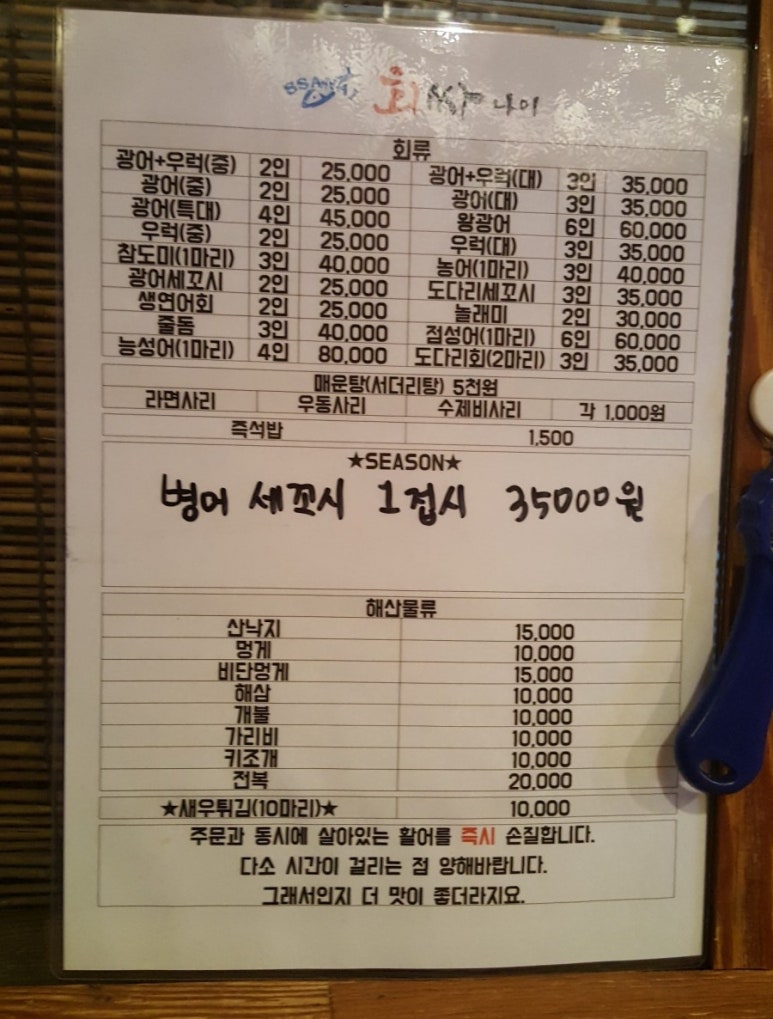 회 싸나이
회류
광어+우럭(중) 2인 25,000 광어+우럭(대) 3인 35,000
광어(중) 2인 25,000 광어(대) 3인 35,000
광어(특대) 4인 45,000 왕광어 6인 60,000
우럭(중) 2인 25,000 우럭(대) 3인 35,000
참도미(1마리) 3인 40,000 농어(1마리) 3인 40,000
광어세꼬시 2인 25,000 도다리세꼬시 3인 35,000
생연어회 2인 25,000 놀래미 2인 30,000
줄돔 3인 40,000 점성어(1마리) 6인 60,000
능성어(1마리) 4인 80,000 도다리회(2마리) 3인 35,000
매운탕(서더리탕) 5천원
라면사리 우동사리 수제비사리 각 1,000원
즉석밥 1,500
★SEASON★
병어 세꼬시 1접시 35000원
해산물류
산낙지 15,000
멍게 10,000
비단멍게 15,000
해삼 10,000
개불 10,000
가리비 10,000
키조개 10,000
전복 20,000
★새우튀김(10마리)★ 10,000
주문과 동시에 살아있는 활어를 즉시 손질합니다.
다소 시간이 걸리는 점 양해바랍니다.
그래서인지 더 맛이 좋더라지요.